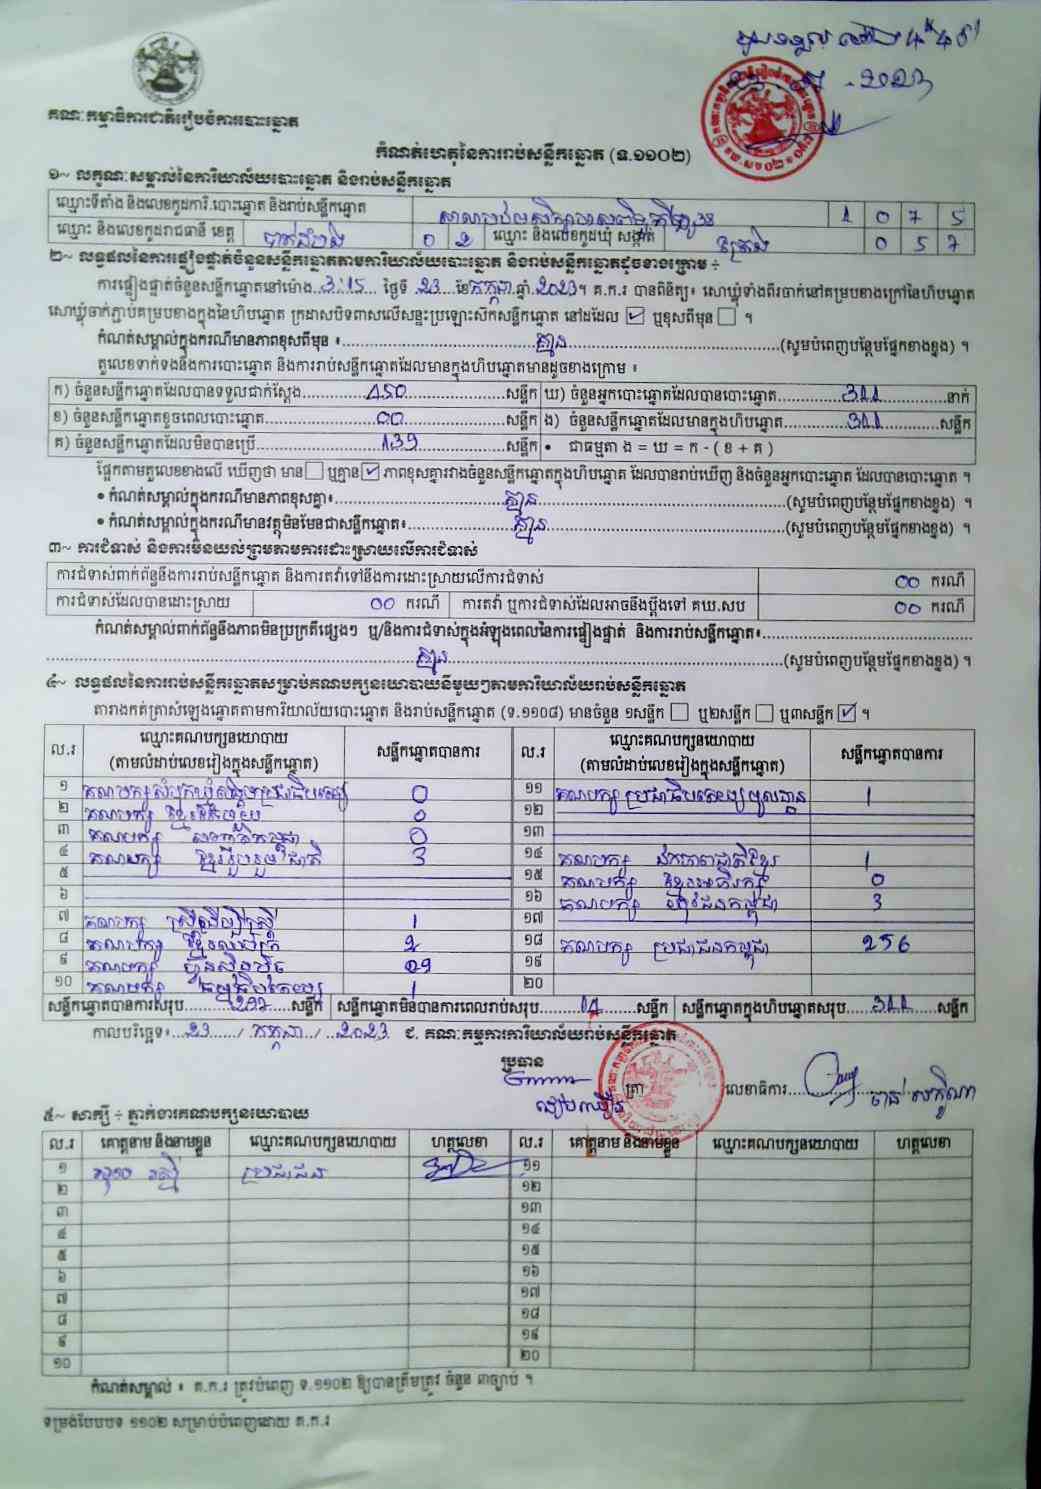 គណៈកម្មាធិការជាតិរៀបចំការបោះឆ្នោត
កំណត់ហេតុនៃការរាប់សន្លឹកឆ្នោត (ទ.១១០២)
១~ លក្ខណៈសម្គាល់នៃការិយាល័យបោះឆ្នោត និងរាប់សន្លឹកឆ្នោត
ឈ្មោះទីតាំង និងលេខកូដការិ.បោះឆ្នោត និងរាប់សន្លឹកឆ្នោត 1 0 7 5
ឈ្មោះ និងលេខកូដរាជធានី ខេត្ត បាត់ដំបង 0 2 ឈ្មោះ និងលេខកូដឃុំ សង្កាត់ 0 5 7
២~ លទ្ធផលនៃការផ្ទៀងផ្ទាត់ចំនួនសន្លឹកឆ្នោតតាមការិយាល័យបោះឆ្នោត និងរាប់សន្លឹកឆ្នោតដូចខាងក្រោម ÷
ការផ្ទៀងផ្ទាត់ចំនួនសន្លឹកឆ្នោតនៅម៉ោង 3:15 ថ្ងៃទី 23 ខែ កក្កដា ឆ្នាំ 2023។ គ.ក.រ បានពិនិត្យ៖ សោឃ្លុំទាំងពីរចាក់នៅគម្របខាងក្រៅនៃហិបឆ្នោត
សោឃ្លុំចាក់ភ្ជាប់គម្របខាងក្នុងនៃហិបឆ្នោត ក្រដាសបិទពាសលើសន្ទះប្រឡោះសឹកសន្លឹកឆ្នោត នៅដដែល ☑ ឬខុសពីមុន ☐ ។
កំណត់សម្គាល់ក្នុងករណីមានភាពខុសពីមុន ៖ គ្មាន (សូមបំពេញបន្ថែមផ្នែកខាងខ្នង) ។
តួលេខទាក់ទងនឹងការបោះឆ្នោត និងការរាប់សន្លឹកឆ្នោតដែលមានក្នុងហិបឆ្នោតមានដូចខាងក្រោម ៖
ក) ចំនួនសន្លឹកឆ្នោតដែលបានទទួលជាក់ស្តែង 450 សន្លឹក ឃ) ចំនួនអ្នកបោះឆ្នោតដែលបានបោះឆ្នោត 311 នាក់
ខ) ចំនួនសន្លឹកឆ្នោតខូចពេលបោះឆ្នោត 00 សន្លឹក ង) ចំនួនសន្លឹកឆ្នោតដែលមានក្នុងហិបឆ្នោត 311 សន្លឹក
គ) ចំនួនសន្លឹកឆ្នោតដែលមិនបានប្រើ 139 សន្លឹក • ជាធម្មតា ង = ឃ = ក - ( ខ + គ )
ផ្អែកតាមតួលេខខាងលើ ឃើញថា មាន ☐ ឬគ្មាន ☑ ភាពខុសគ្នារវាងចំនួនសន្លឹកឆ្នោតក្នុងហិបឆ្នោត ដែលបានរាប់ឃើញ និងចំនួនអ្នកបោះឆ្នោត ដែលបានបោះឆ្នោត ។
• កំណត់សម្គាល់ក្នុងករណីមានភាពខុសគ្នា៖ គ្មាន (សូមបំពេញបន្ថែមផ្នែកខាងខ្នង) ។
• កំណត់សម្គាល់ក្នុងករណីមានវត្ថុមិនមែនជាសន្លឹកឆ្នោត៖ គ្មាន (សូមបំពេញបន្ថែមផ្នែកខាងខ្នង) ។
៣~ ការជំទាស់ និងការមិនយល់ព្រមតាមការដោះស្រាយលើការជំទាស់
ការជំទាស់ពាក់ព័ន្ធនឹងការរាប់សន្លឹកឆ្នោត និងការតវ៉ាទៅនឹងការដោះស្រាយលើការជំទាស់ 00 ករណី
ការជំទាស់ដែលបានដោះស្រាយ 00 ករណី ការតវ៉ា ឬការជំទាស់ដែលអាចនឹងប្តឹងទៅ គឃ.សប 00 ករណី
កំណត់សម្គាល់ពាក់ព័ន្ធនឹងភាពមិនប្រក្រតីផ្សេងៗ ឬ/និងការជំទាស់ក្នុងអំឡុងពេលនៃការផ្ទៀងផ្ទាត់ និងការរាប់សន្លឹកឆ្នោត៖
គ្មាន (សូមបំពេញបន្ថែមផ្នែកខាងខ្នង) ។
៤~ លទ្ធផលនៃការរាប់សន្លឹកឆ្នោតសម្រាប់គណបក្សនយោបាយនីមួយៗតាមការិយាល័យរាប់សន្លឹកឆ្នោត
តារាងកត់ត្រាសំឡេងឆ្នោតតាមការិយាល័យបោះឆ្នោត និងរាប់សន្លឹកឆ្នោត (ទ.១១០៨) មានចំនួន ១សន្លឹក ☐ ឬ២សន្លឹក ☐ ឬ៣សន្លឹក ☑ ។
ល.រ ឈ្មោះគណបក្សនយោបាយ (តាមលំដាប់លេខរៀងក្នុងសន្លឹកឆ្នោត) សន្លឹកឆ្នោតបានការ ល.រ ឈ្មោះគណបក្សនយោបាយ (តាមលំដាប់លេខរៀងក្នុងសន្លឹកឆ្នោត) សន្លឹកឆ្នោតបានការ
១ គណបក្ស សំបុកឃ្មុំសង្គមប្រជាធិបតេយ្យ 0 ១១ គណបក្ស ប្រជាធិបតេយ្យមូលដ្ឋាន 1
២ គណបក្ស 0 ១២
៣ គណបក្ស 0 ១៣
៤ គណបក្ស ខ្មែររួបរួមជាតិ 3 ១៤ គណបក្ស ឯកភាពជាតិខ្មែរ 1
៥ ១៥ គណបក្ស ខ្មែរអភិរក្ស 0
៦ ១៦ គណបក្ស 3
៧ គណបក្ស ស្ត្រីដើម្បីស្ត្រី 1 ១៧
៨ គណបក្ស 2 ១៨ គណបក្ស ប្រជាជនកម្ពុជា 256
៩ គណបក្ស ហ៊្វុនស៊ិនប៉ិច 29 ១៩
១០ គណបក្ស ធម្មាធិបតេយ្យ 1 ២០
សន្លឹកឆ្នោតបានការសរុប 297 សន្លឹក សន្លឹកឆ្នោតមិនបានការពេលរាប់សរុប 14 សន្លឹក សន្លឹកឆ្នោតក្នុងហិបឆ្នោតសរុប 311 សន្លឹក
កាលបរិច្ឆេទ៖ 23 / កក្កដា / 2023 ៩. គណៈកម្មការការិយាល័យរាប់សន្លឹកឆ្នោត
ប្រធាន
ត្រា លេខាធិការ
៥~ សាក្សី ÷ ភ្នាក់ងារគណបក្សនយោបាយ
ល.រ គោត្តនាម និងនាមខ្លួន ឈ្មោះគណបក្សនយោបាយ ហត្ថលេខា ល.រ គោត្តនាម និងនាមខ្លួន ឈ្មោះគណបក្សនយោបាយ ហត្ថលេខា
១ ប្រជាជន ១១
២ ១២
៣ ១៣
៤ ១៤
៥ ១៥
៦ ១៦
៧ ១៧
៨ ១៨
៩ ១៩
១០ ២០
កំណត់សម្គាល់ ៖ គ.ក.រ ត្រូវបំពេញ ទ.១១០២ ឱ្យបានត្រឹមត្រូវ ចំនួន ៣ច្បាប់ ។
ទម្រង់បែបបទ ១១០២ សម្រាប់បំពេញដោយ គ.ក.រ